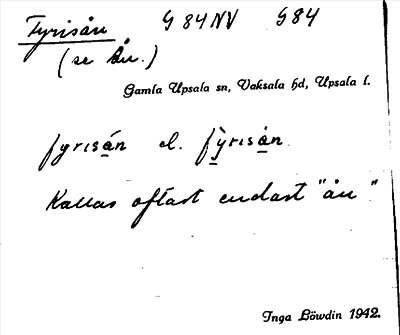 Fyrisån G 84 NV G 84
(se Ån.)
Gamla Upsala sn, Vaksala hd, Upsala l.
fyrisån el. fyrisån
Kallas oftast endast "ån".
Inga Löwdin 1942.